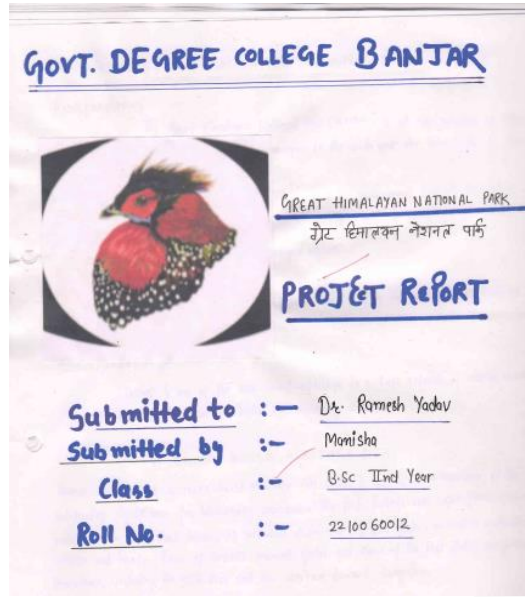 GOVT. DEGREE COLLEGE BANJAR
GREAT HIMALAYAN NATIONAL PARK
ग्रेट हिमालयन नेशनल पार्क
PROJECT REPORT
Submitted to :- Dr. Ramesh Yadav
Submitted by :- Manisha
Class :- B.Sc IInd Year
Roll No. :- 2210060012